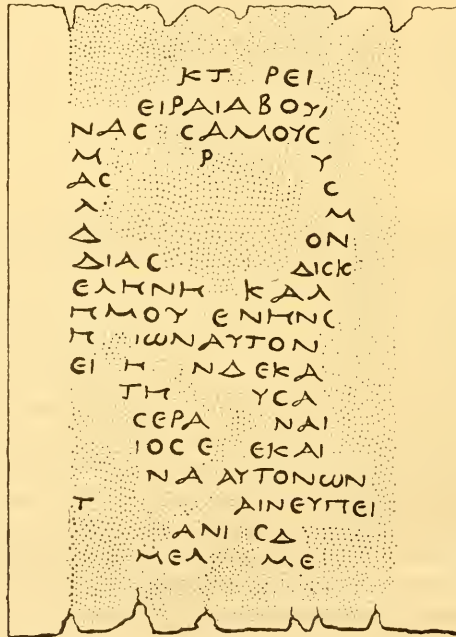 ΚΤ ΡΕΙ
ΕΙΡΑΙΑΒΟΥΙ
ΝΑϹ ϹΑΜΟΥϹ
Μ Ρ Υ
ΑϹ Ϲ
Λ Μ
Δ ΟΝ
ΔΙΑϹ ΔΙϹΚ
ΕΛΗΝΗ ΚΑΛ
ΗΜΟΥ ΕΝΗΝϹ
Π ΙΩΝΑΥΤΟΝ
ΕΙ Η ΝΔΕΚΑ
ΤΗ ΥϹΑ
ϹΕΡΑ ΝΑΙ
ΙΟϹΕ ΕΚΑΙ
ΝΑ ΑΥΤΟΝΩΝ
Τ ΑΙΝΕΥΠΕΙ
ΑΝΙ ϹΔ
ΜΕΛ ΜΕ